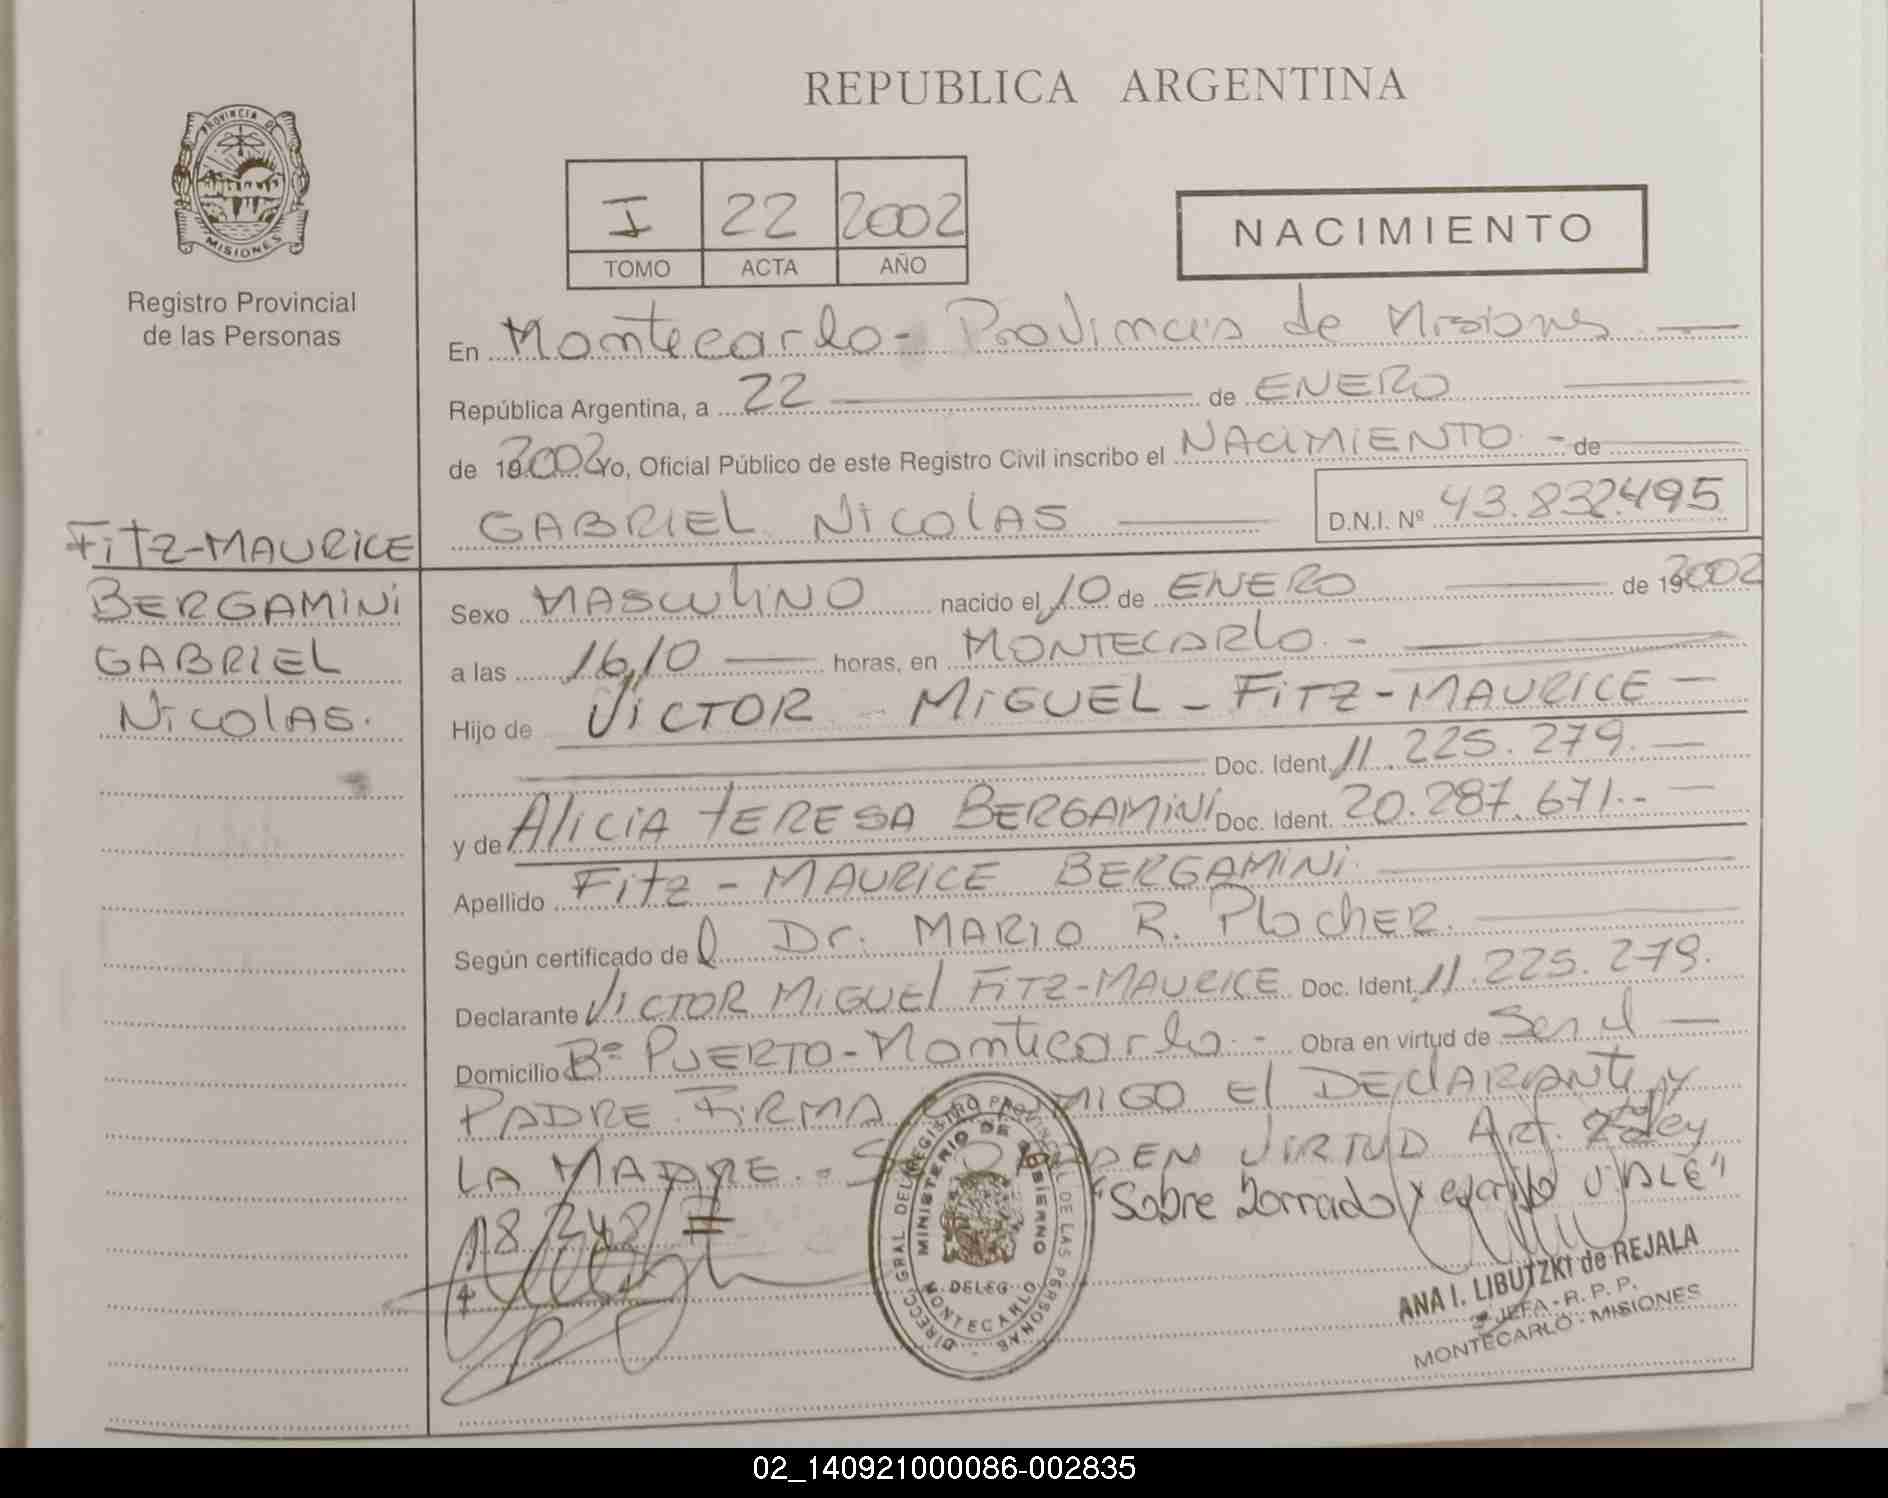 REPUBLICA ARGENTINA
PROVINCIA DE
MISIONES
Registro Provincial
de las Personas
I 22 2002
TOMO ACTA AÑO
NACIMIENTO
En Montecarlo - Provincia de Misiones
República Argentina, a 22 de ENERO
de 192002 Yo, Oficial Público de este Registro Civil inscribo el NACIMIENTO - de
GABRIEL NICOLAS D.N.I. Nº 43.832.495
FITZ-MAURICE
BERGAMINI
GABRIEL
NICOLAS.
Sexo MASCULINO nacido el 10 de ENERO de 192002
a las 16,10 horas, en MONTECARLO. -
Hijo de VICTOR - MIGUEL - FITZ-MAURICE -
Doc. Ident. 11.225.279. -
y de ALICIA TERESA BERGAMINI Doc. Ident. 20.287.671.- -
Apellido FITZ - MAURICE BERGAMINI
Según certificado del Dr. MARIO R. PlocHER.
Declarante VICTOR MIGUEL FITZ-MAURICE Doc. Ident. 11.225.279.
Domicilio Bº PUERTO - Montecarlo. - Obra en virtud de Ser el -
PADRE. FIRMA MIGO El DEClARANTE y
LA MADRE. - EN VIRTUD Art. 2º Ley
18.248/ "Sobre borrado y escrito VALE"
DIRECC. GRAL DEL REGISTRO PROVINCIAL DE LAS PERSONAS
MINISTERIO DE GOBIERNO
DELEG.
MONTECARLO
ANA I. LIBUTZKI de REJALA
JEFA - R. P. P.
MONTECARLO - MISIONES
02_140921000086-002835